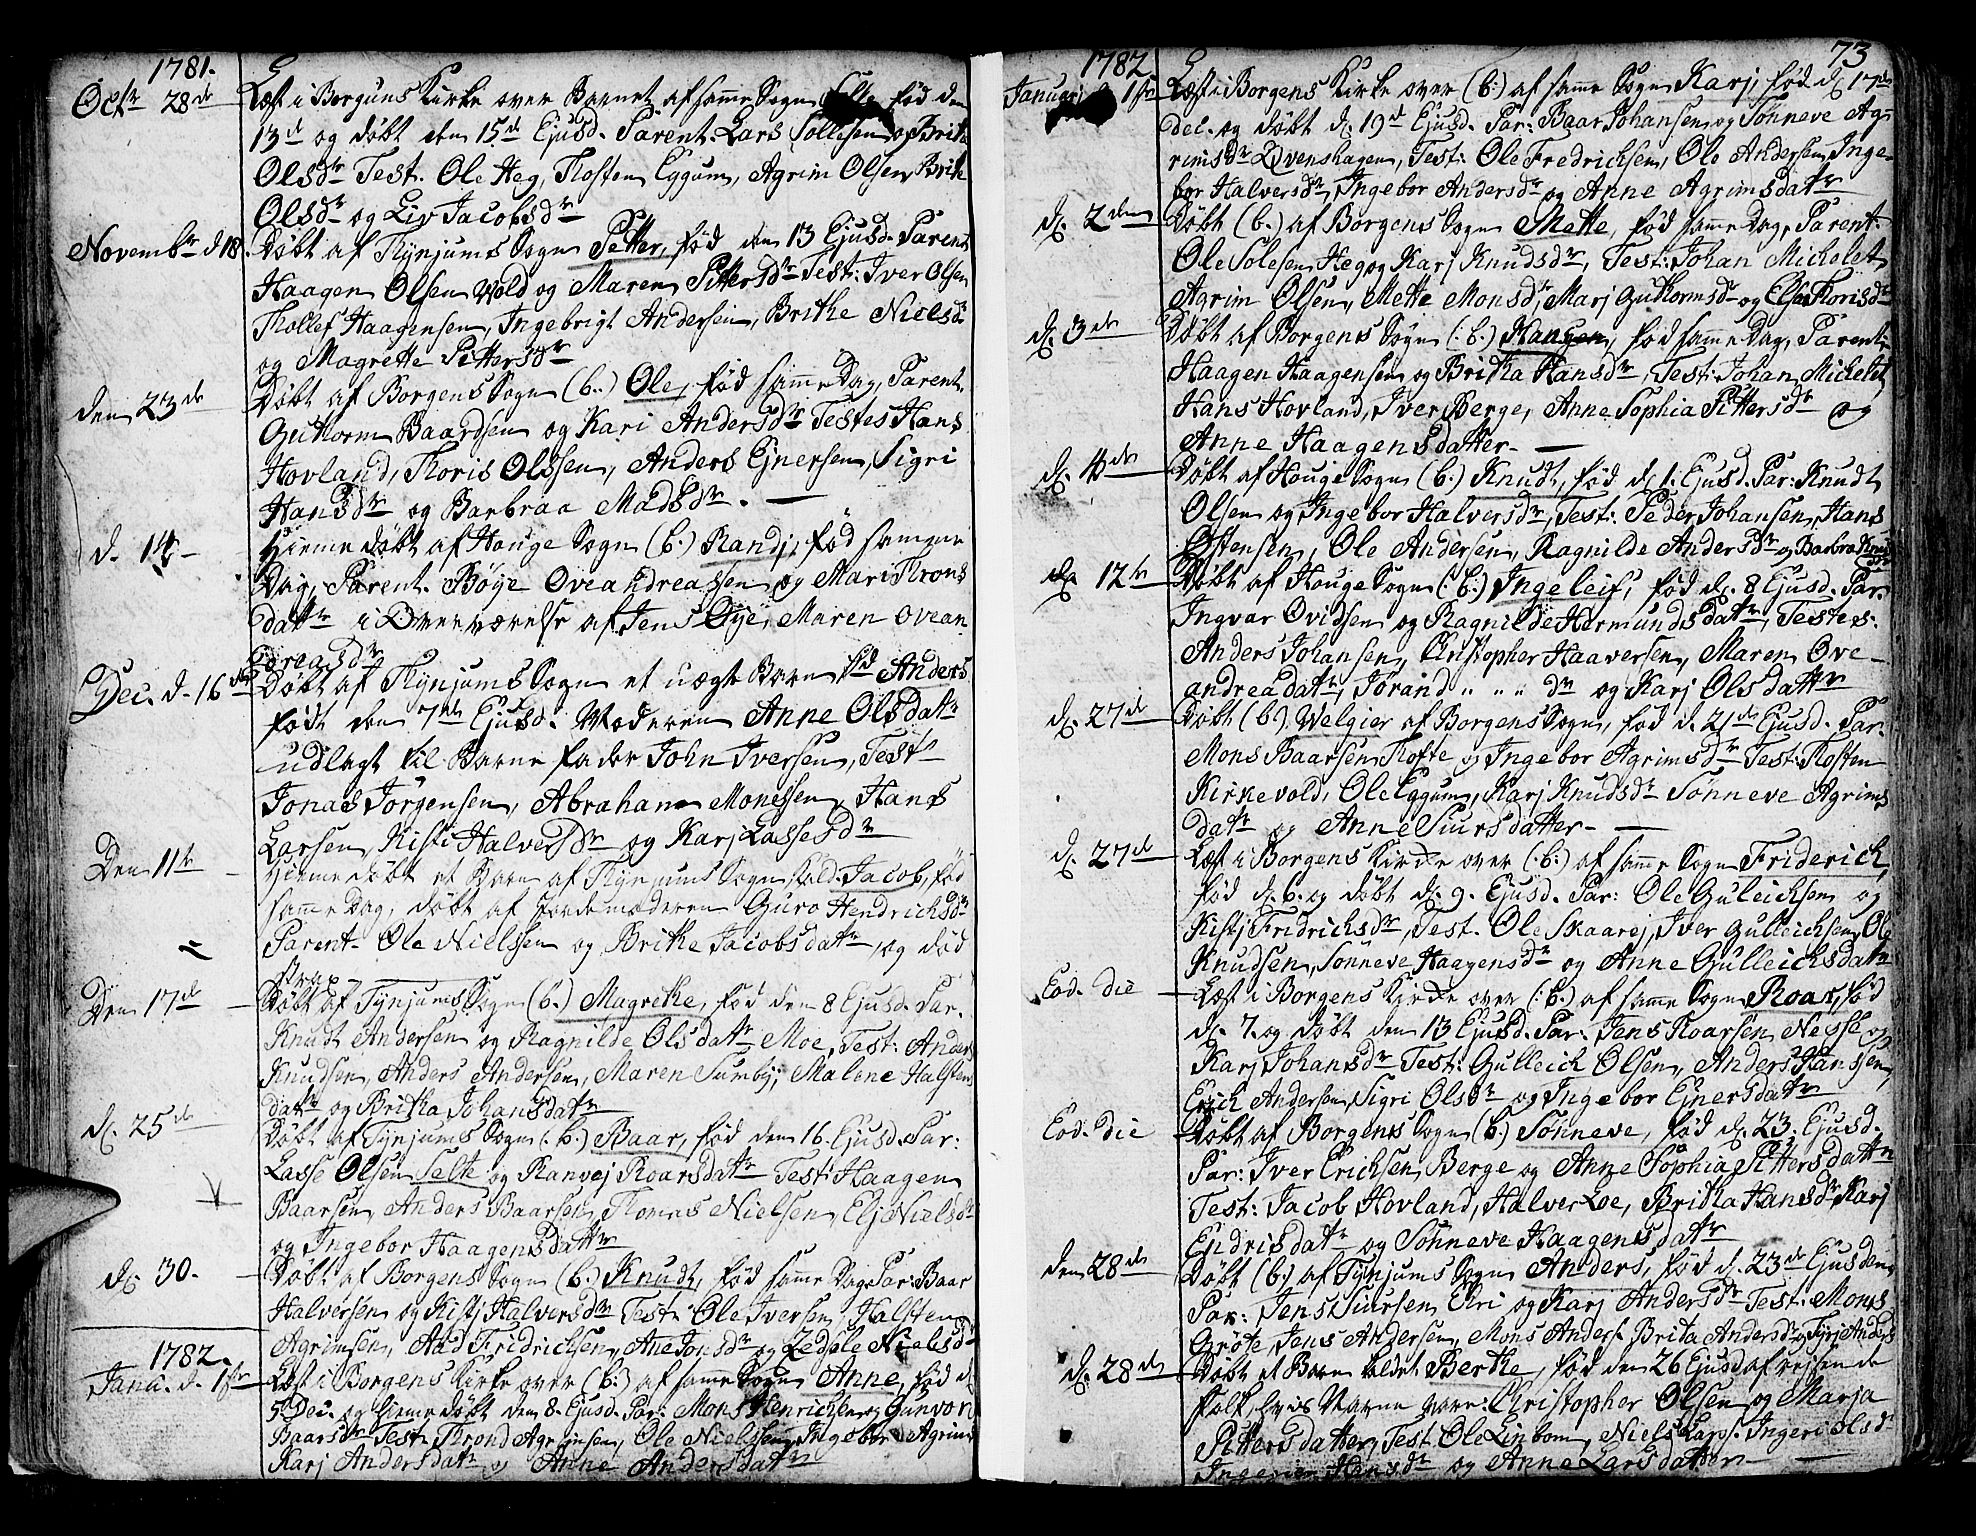 1781.
Octr 28de Læst i Borguns Kirke over Barnet af samme Sogn fød den
13d og døbt den 15d Ejusd. Parent: Lars Sollesen og Brite
Olsdr Test. Ole Heg, Thosten Eggum, Agrim Olsen, Brite
Olsdr og Liv Jacobsdr
Novembr d 18. Døbt af Thynjums Sogn Petter, fød den 13 Ejusd. Parent
Haagen Olsen Vold og Maren Pittersdr Test: Iver Olsen
Thollef Haagensen, Ingebrigt Andersen, Brithe Nielsdr
og Magrette Pittersdr
den 23de Døbt af Borgens Sogn (b.) Ole, fød samme Dag, Parent.
Guthorm Baardsen og Kari Andersdr Testes Hans
Hovland, Thoris Olssen, Anders Ejnersen, Sigri
Hansdr og Barbraa Madsdr. —
d. 14 - Hieme døbt af Houge Sogn (b.) Randj, fød samme
Dag, Parent. Bøye Oveandreassen og Mari Throns
datr i Overværelse af Jens Øye, Maren Ovean
dreasdr
Dec. d. 16de Døbt af Thynjums Sogn et uægte Barn Nd Anders
født den 7de Ejusd. Moderen Anne Olsdatr
udlagt til Barne fader John Iversen, Test
Jonas Jörgensen, Abraham Monessen, Hans
Larsen, Kisti Halversdr og Karj Lassesdr
Den 11te Hieme døbt et Barn af Thynjums Sogn kald. Jacob, fød
samme Dag, døbt af Jordemoderen Guro Hendrichsdr
Parent. Ole Nielssen og Brithe Jacobsdatr, og død
strax
Den 17de Døbt af Tynjums Sogn (b.) Magrethe, fød den 8 Ejusd. Par.
Knudt Andersen og Ragnilde Olsdatr Moe, Test: Anders
Knudsen, Anders Andersen, Maren Sumby, Malene Halstens
datr og Britha Johansdatr
d. 25de Døbt af Tynjums Sogn (:b.) Baar, fød den 16. Ejusd. Par:
Lasse Olsen Selte og Ranvej Roarsdatr Test: Haagen
Baarsen, Anders Baarsen, Thomas Nielsen, Elj Nielsdr
og Ingebor Haagensdatter
d. 30. Døbt af Borgens Sogn (b.) Knudt, fød samme Dag Par: Baar
Halversen og Kistj Halversdr Test: Ole Iversen, Halsten
Agrimsen, Aad Fridrichsen, Ane Jonsdr og Zedsele Nielsdr
1782.
Janu. d. 1ste Læst i Borgens Kirke over (b:) af samme Sogn Anne, fød d.
5 Dec. og hieme døbt den 8. Ejusd. Par: Mons Henrichsen og Gunvor
Baarsdr Test: Thrond Agrimsen, Ole Nielssen, Ingebor Agrims
Karj Andersdatr og Anne Andersdatr
1782 73
Januarj 1ste Læst i Borgens Kirke over (b:) af samme Sogn Karj, fød d. 17de
Dec. og døbt d. 19d Ejusd. Par: Baar Johansen og Sönneve Ag-
rimsdr Qvenshagen, Test: Ole Fredrichsen, Ole Andersen, Inge-
bor Halversdr, Ingebor Andersdr og Anne Agrimsdatr
d. 2den Døbt (b.) af Borgens Sogn Mette, fød samme Dag, Parent:
Ole Solesen Heg og Karj Knudsdr, Test: Johan Michelet
Agrim Olsen, Mette Monsdr, Marj Guthormsdr og Else Thorisdr
d. 3de Døbt af Borgens Sogn (:b.) Haagen, fød samme Dag, Parent:
Haagen Haagensen og Britha Hansdr, Test: Johan Michelet
Hans Hovland, Iver Berge, Anne Sophia Pittersdr og
Anne Haagensdatter. —
d. 4de Døbt af Houge Sogn (b.) Knudt, fød d. 1. Ejusd. Par: Knudt
Olsen og Ingebor Halversdr, Test: Peder Johansen, Hans
Østensen, Ole Andersen, Ragnilde Andersdr og Barbra
d. 12te Døbt af Houge Sogn (:b:) Ingeleif, fød d. 8 Ejusd. Par.
Ingvar Ovidsen og Ragnilde Hermundsdatr, Testes:
Anders Johansen, Christopher Haaversen, Maren Ove-
andreadatr, Jórand " " " dr og Karj Olsdattr
d. 27de Døbt (b.) Welgier af Borgens Sogn, fød d. 21de Ejusd. Par.
Mons Baarsen Thofte og Ingebor Agrimsdr Test: Thosten
Kirkevold, Ole Eggum, Karj Knudsdr Sönneve Agrims
datr og Anne Siursdatter. —
d. 27de Læst i Borgens Kirche over (:b:) af samme Sogn Friderich,
fød d. 6. og døbt d. 9. Ejusd. Par: Ole Guleichsen og
Kistj Fridrichsdr, Test. Ole Skaarej, Iver Gulleichsen, Ole
Knudsen, Sönneve Haagensdr og Anne Gulleichsdatr
Eod. die Læst i Borgens Kirche over (:b.) af samme Sogn Roar, fød
d. 7. og døbt den 13 Ejusd. Par: Jens Roarsen Nesse og
Karj Johansdr Test: Gulleich Olsen, Anders Hanssen,
Erich Andersen, Sigri Olsdr og Ingebor Ejnersdattr
Eod. die Døbt af Borgens Sogn (b.) Sönneve, fød d. 23. Ejusd.
Par: Iver Erichsen Berge og Anne Sophia Pittersdattr
Test: Jacob Hovland, Halver Loe, Britha Hansdr, Karj
Endrisdatr og Sönneve Haagensdatr
den 28de Døbt (b.) af Tynjums Sogn Anders, fød d. 23de Ejusdem
Par: Jens Siursen Elri og Karj Andersdr Test: Mons
Gröte, Jens Andersen, Mons Anders. Brita Andersdr og Tyri Anders
d. 28de Døbt et Barn kaldet Berthe, fød den 26 Ejusd af rejsende
folk, hvis Navne vare: Christopher Olsen og Marja
Pittersdatter, Test: Ole Linbom, Niels Lars. Ingeri Olsdr
Hansdr og Anne Larsdatter —